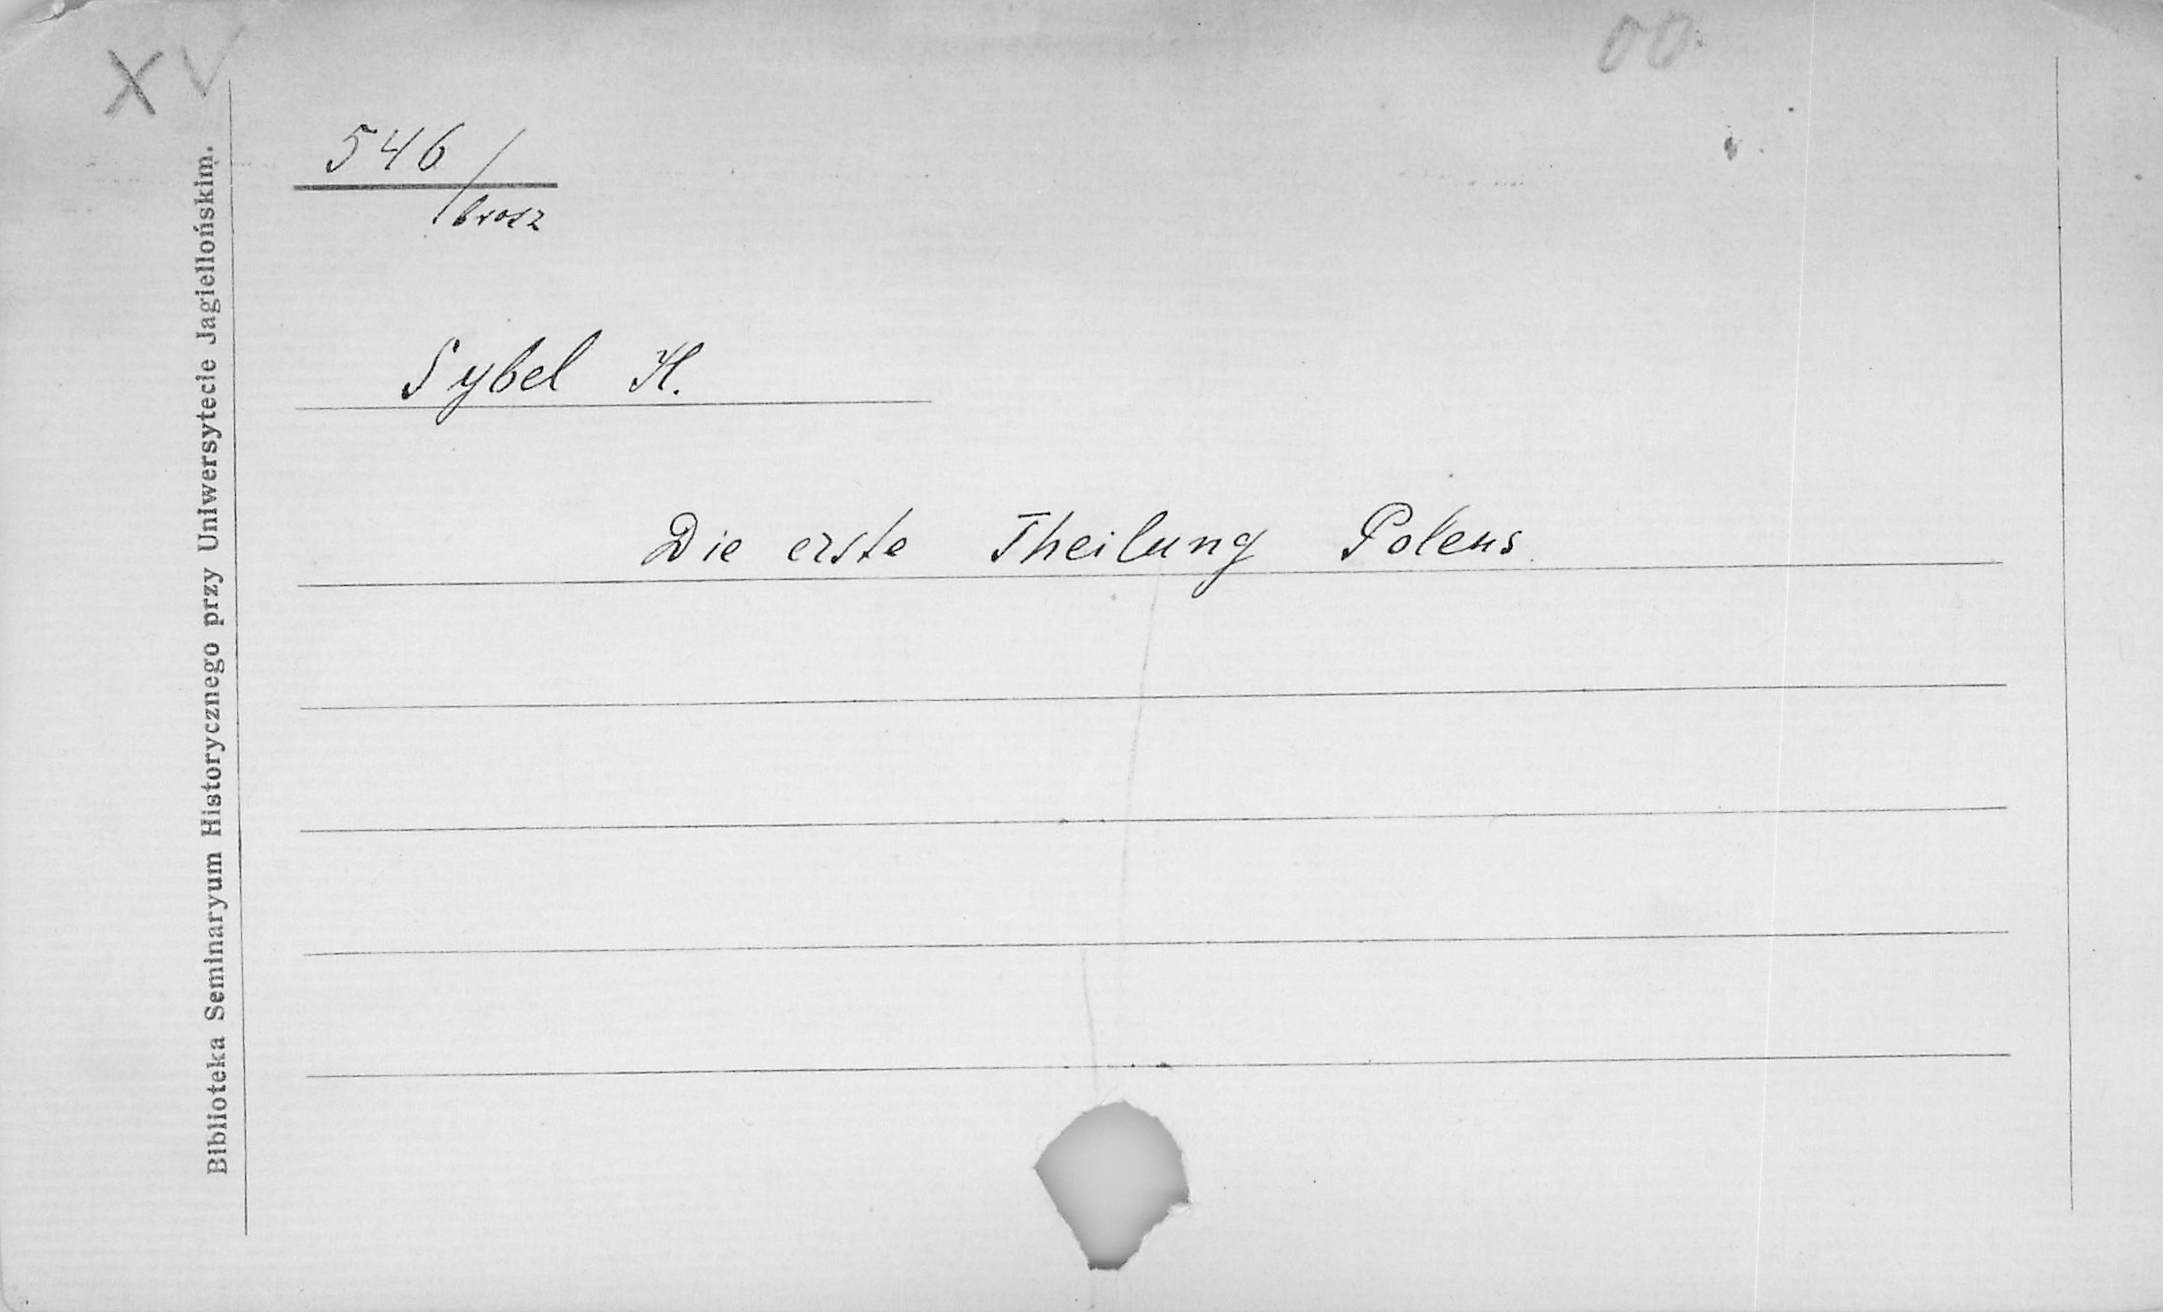 X V
00.
546/
brosz
Sybel H.
Die erste Theilung Polens
Biblioteka Seminaryum Historycznego przy Uniwersytecie Jagiellońskim.